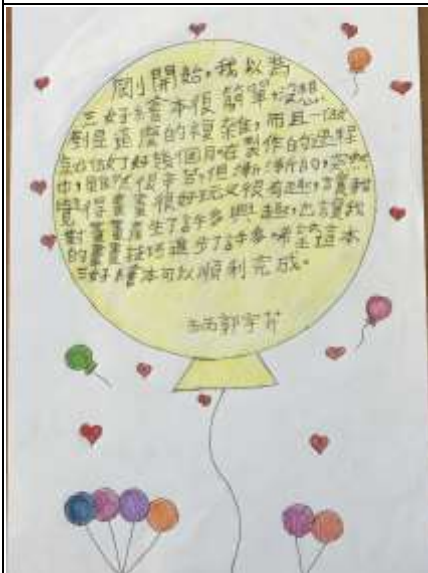 剛開始,我以為
三好繪本很簡單,沒想
到是這麼的複雜,而且一做
就做了好幾個月。在製作的過程
中,雖然很辛苦,但漸漸的,突然
覺得畫畫很好玩又很有趣,讓我
對畫畫產生了許多興趣,也讓我
的畫畫技巧進步了許多,希望這本
三好繪本可以順利完成。
郭宇芹